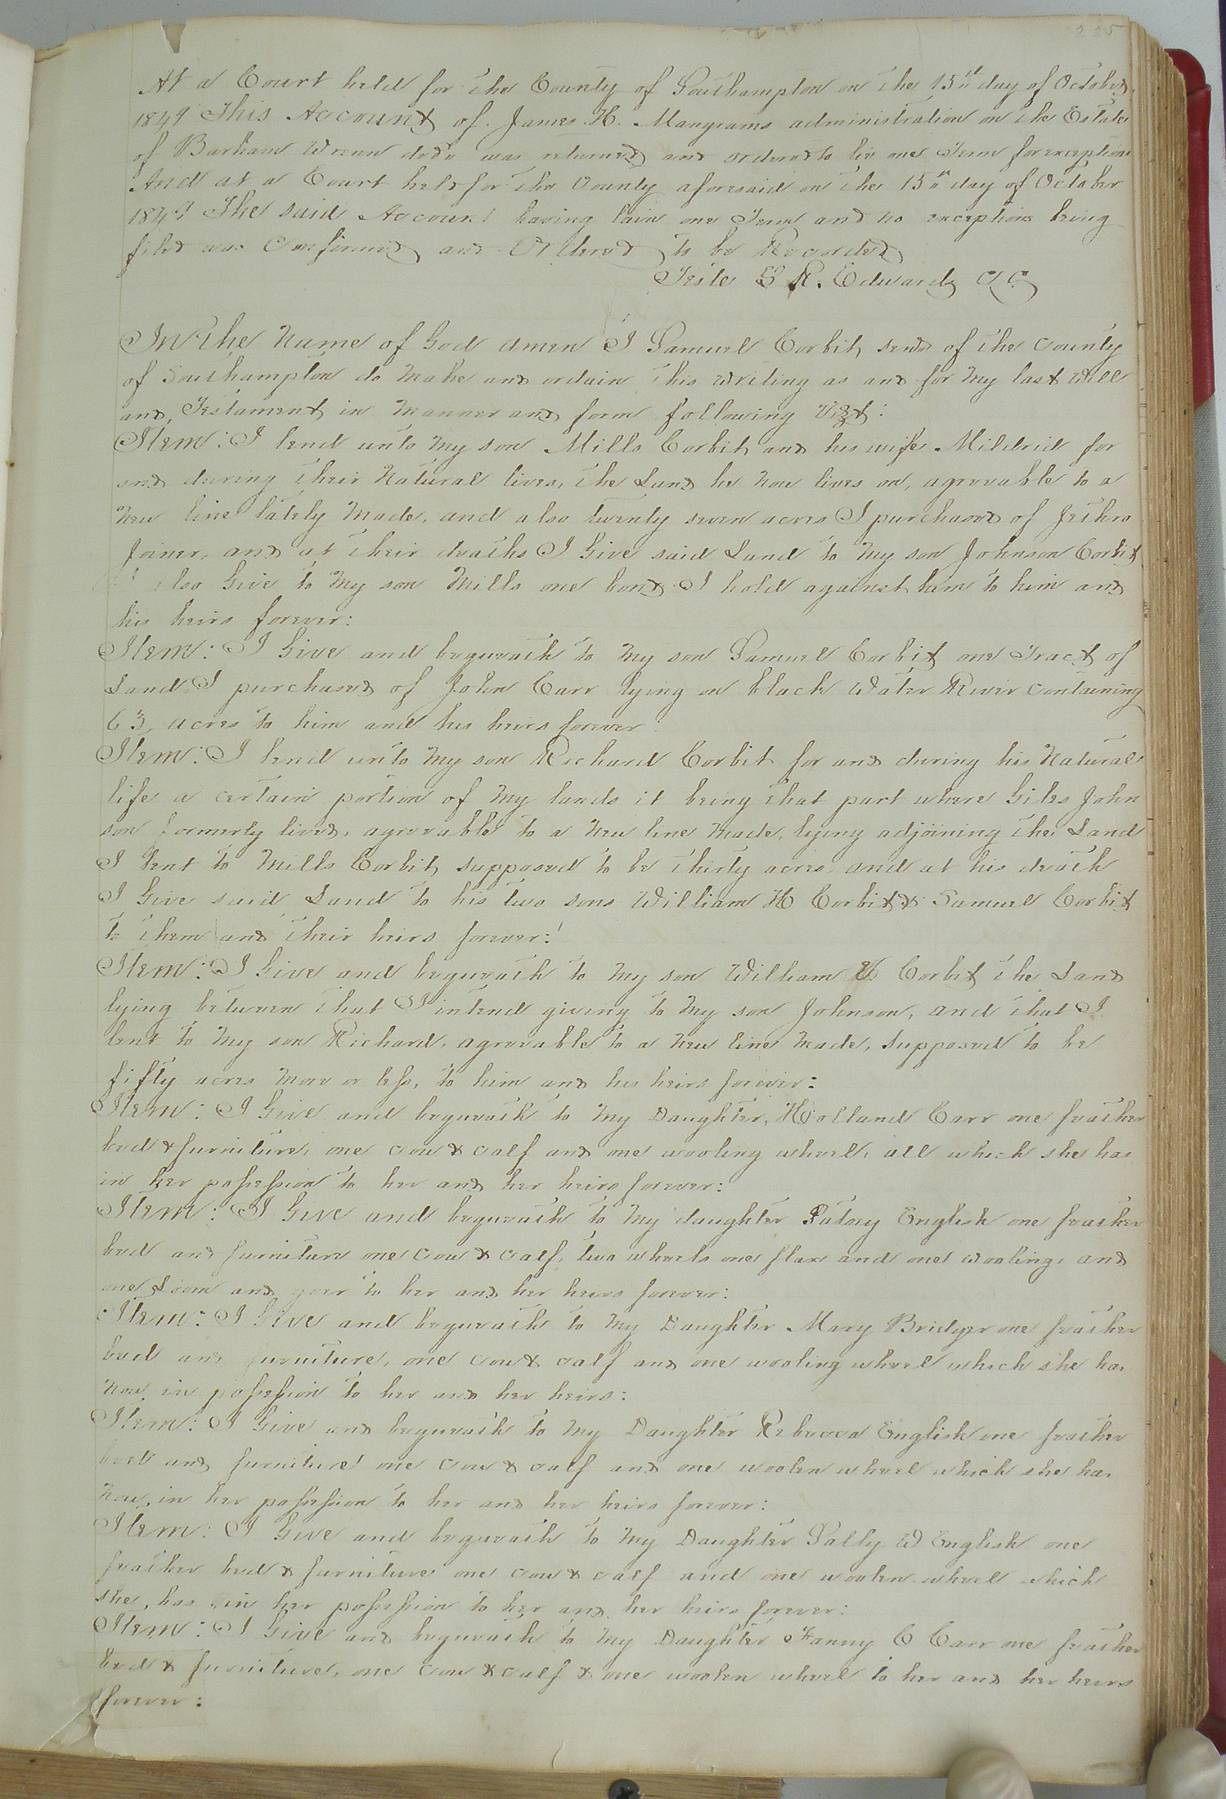 225
At a Court held for the County of Southampton on the 15th day of October
1849 This Account of James H. Mangrams administration on the Estate
of Barham Wrenn decd. was returned and ordered to lie one Term for exception
And at a Court held for the County aforesaid on the 15th day of October
1849 The said Account having lain one Term and no exceptions being
filed was Confirmed and Ordered to be Recorded
Teste L R. Edwards CC
In The Name of God amen I Samuel Corbit, senr of the county
of Southampton do make and ordain this writing as and for my last Will
and Testament in manner and form following Vizt:
Item: I lend unto my son Mills Corbit and his wife Mildred for
and during their Natural lives, the Land he now lives on, agreeable to a
new line lately made, and also twenty seven acres I purchased of Jethro
Joiner, and at their deaths I Give said Land to my son Johnson Corbit
I also Give to my son Mills one bond I hold against him to him and
his heirs forever:
Item: I Give and bequeath to my son Samuel Corbit one Tract of
Land I purchased of John Carr lying on black Water River containing
63 acres to him and his heirs forever
Item: I lend unto my son Richard Corbit for and during his Natural
life a certain portion of my lands it being that part where Giles John
son formerly lived, agreeable to a new line made, lying adjoining the Land
I lent to Mills Corbit, supposed to be thirty acres and at his death
I Give said Land to his two sons William H Corbit & Samuel Corbit
to them and their heirs forever:
Item: I Give and bequeath to my son William Corbit the Land
lying between that I intend giving to my son Johnson, and that I
lent to my son Richard, agreeable to a new line made, supposed to be
fifty acres more or less, to him and his heirs forever:
Item: I Give and bequeath to my Daughter, Holland Carr one feather
bed & furniture, one cow & calf and one wooling wheel, all which she has
in her possession to her and her heirs forever:
Item: I Give and bequeath to my daughter Patsey English one feather
bed and furniture one cow & calf, two wheels one flax and one wooling, and
one Loom and geer to her and her heirs forever:
Item: I Give and bequeath to my Daughter Mary Bridger one feather
bed and furniture, one cow & calf and one wooling wheel which she has
now in possession to her and her heirs:
Item: I Give and bequeath to my Daughter Rebecca English one feather
bed and furniture one cow & calf and one woolen wheel which she has
now, in her possession to her and her heirs forever:
Item: I Give and bequeath to my Daughter Sally W English one
feather bed & furniture one cow & calf and one woolen wheel which
she, has in her possession to her and her heirs forever:
Item: I Give and bequeath to my Daughter Fanny C Carr one feather
bed & furniture, one cow & calf & one woolen wheel to her and her heirs
forever: